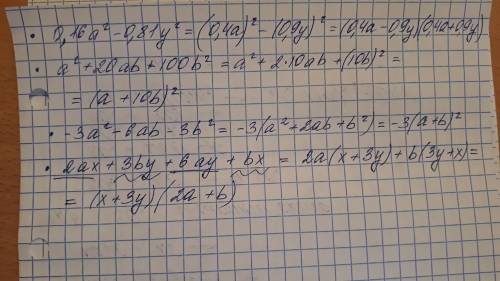 • 0,16a² - 0,81y² = (0,4a)² - (0,9y)² = (0,4a - 0,9y)(0,4a + 0,9y)
• a² + 20ab + 100b² = a² + 2·10ab + (10b)² =
= (a + 10b)²
• -3a² - 6ab - 3b² = -3(a² + 2ab + b²) = -3(a+b)²
• 2ax + 3by + 6ay + bx = 2a(x + 3y) + b(3y + x) =
= (x + 3y)(2a + b)